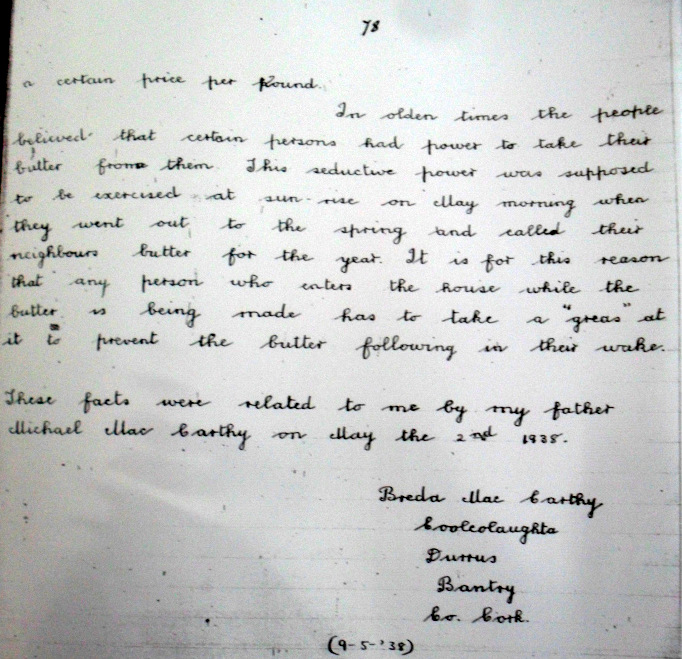 78
a certain price per pound.
In olden times the people
believed that certain persons had power to take their
butter from them. This seductive power was supposed
to be exercised at sun-rise on May morning when
they went out to the spring and called their
neighbours butter for the year. It is for this reason
that any person who enters the house while the
butter is being made has to take a "greas" at
it to prevent the butter following in their wake.
These facts were related to me by my father
Michael Mac Carthy on May the 2nd 1938.
Breda Mac Carthy
Coolcolaughta
Durrus
Bantry
Co. Cork.
(9-5-'38)